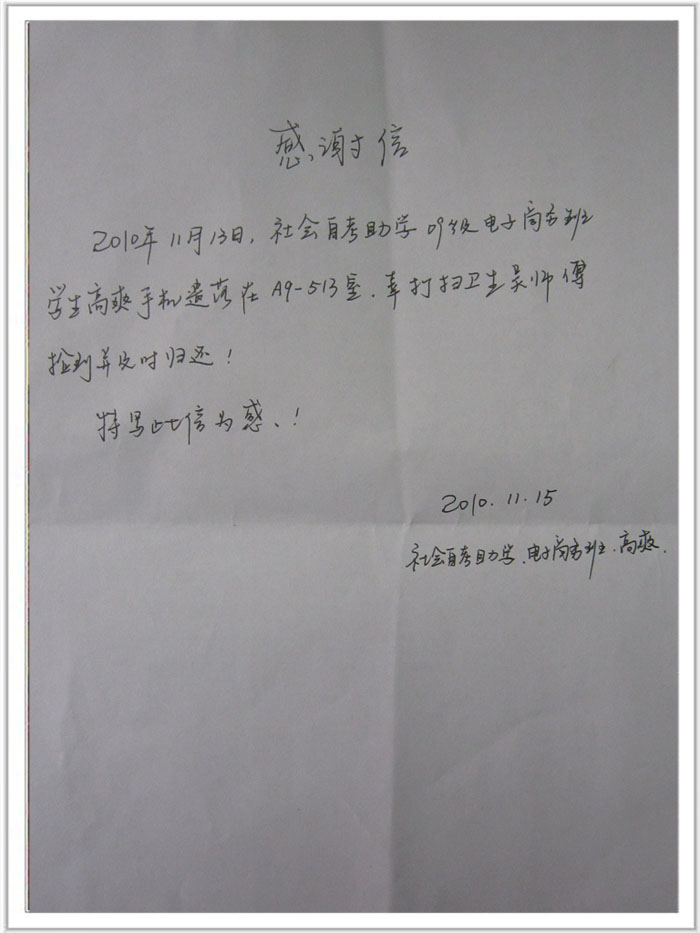 感谢信
2010年11月13日，社会自考助学09级电子商务班
学生高爽手机遗落在A9-513室．幸打扫卫生吴师傅
捡到并及时归还！
特写此信为感．！
2010.11.15
社会自考助学．电子商务班．高爽．